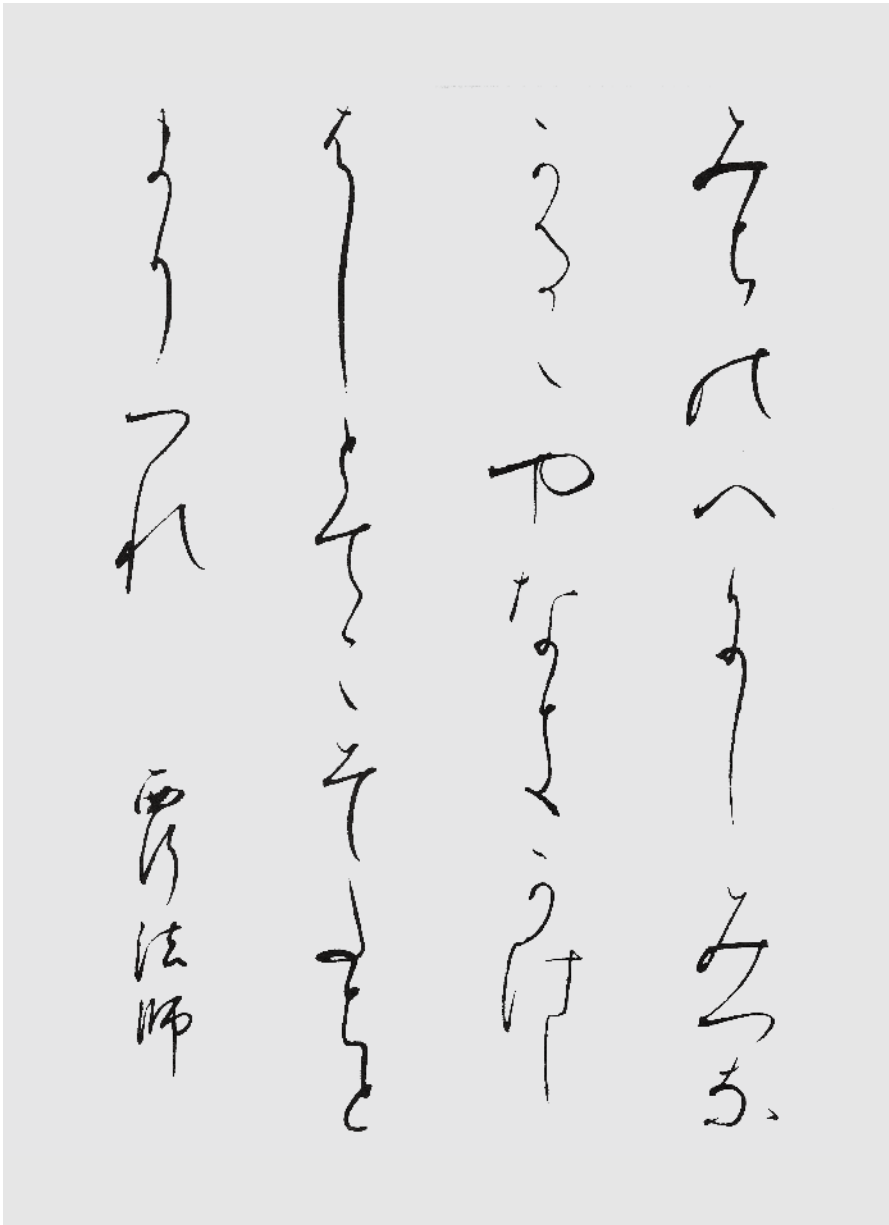 みちのへにしみつな
かるゝやなきかけ
しはしとてこそたちと
まりつれ　西行法師